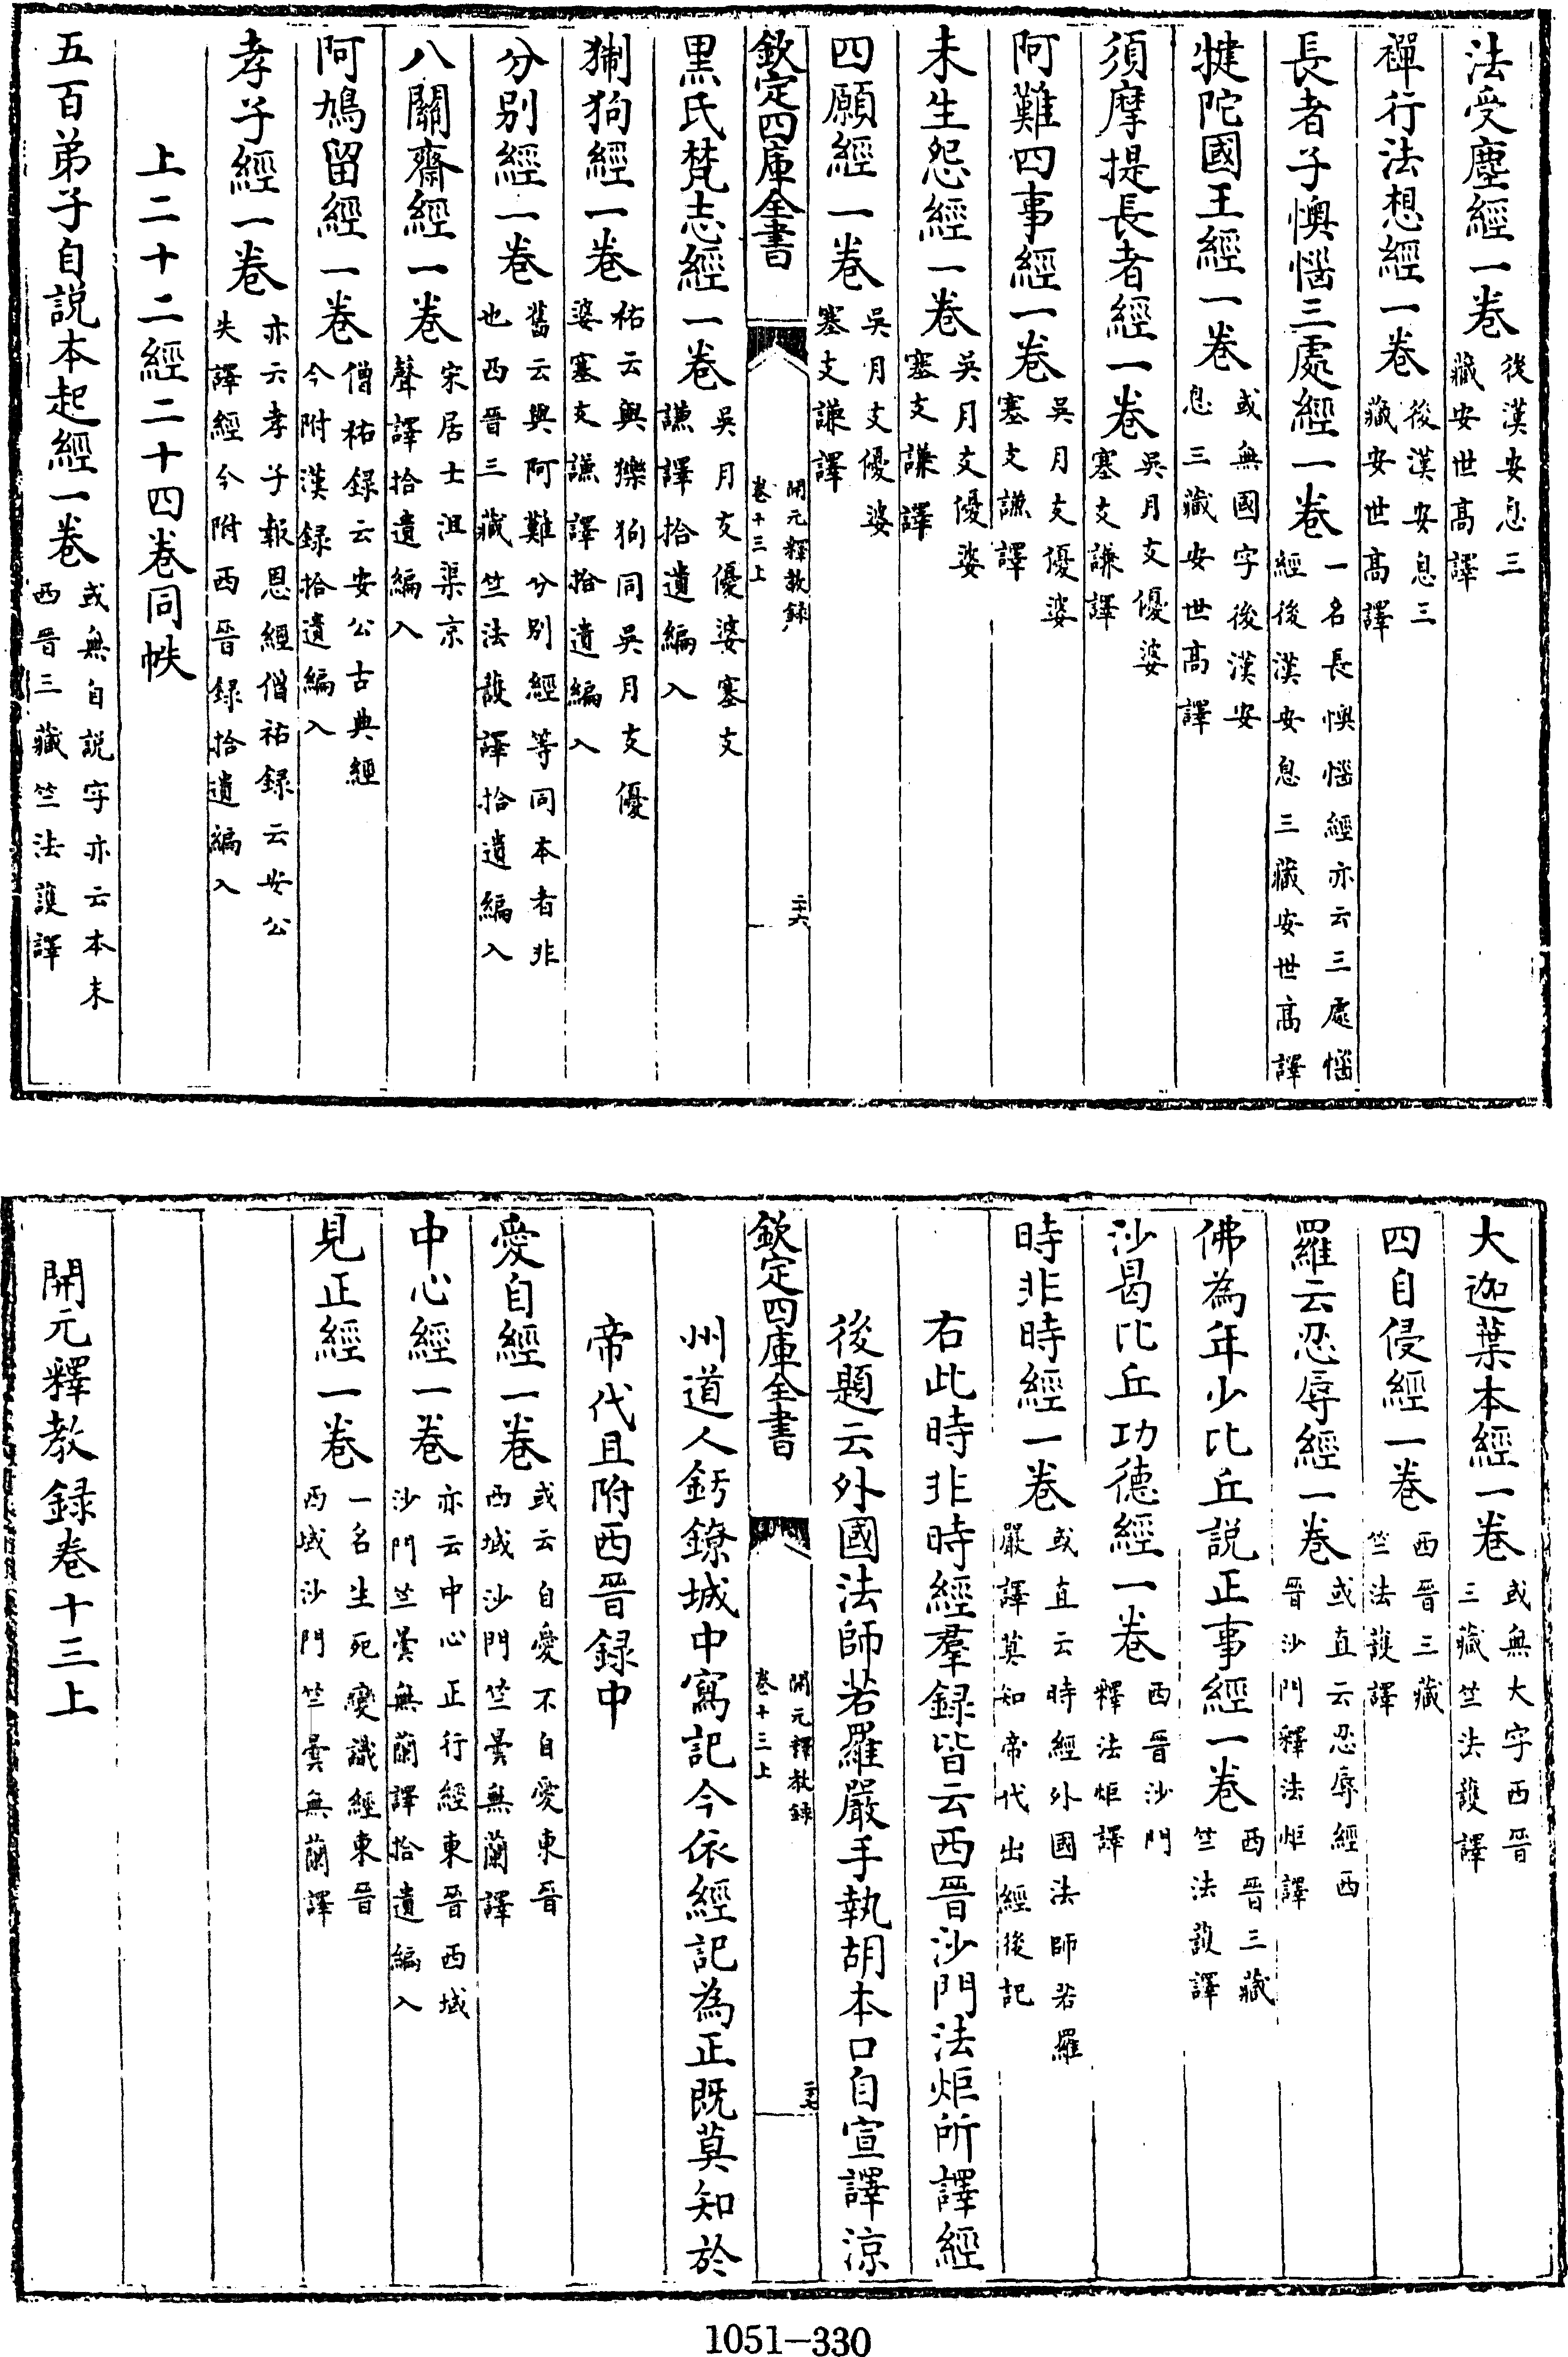 法受塵經一卷後漢安息三藏安世高譯
禪行法想經一卷後漢安息三藏安世高譯
長者子懊惱三處經一卷一名長懊惱經亦云三處惱經後漢安息三藏安世高譯
犍陀國王經一卷或無國字後漢安息三藏安世高譯
須摩提長者經一卷吳月支優婆塞支謙譯
阿難四事經一卷吳月支優婆塞支謙譯
未生怨經一卷吳月支優婆塞支謙譯
四願經一卷吳月支優婆塞支謙譯
欽定四庫全書 開元釋教録卷十三上 二十六
黑氏梵志經一卷吳月支優婆塞支謙譯拾遺編入
猘狗經一卷祐云與㺉狗同吳月支優婆塞支謙譯拾遺編入
分别經一卷舊云與阿難分别經等同本者非也西晉三藏竺法護譯拾遺編入
八關齋經一卷宋居士沮渠京聲譯拾遺編入
阿鳩留經一卷僧祐録云安公古典經今附漢録拾遺編入
孝子經一卷亦云孝子報恩經僧祐録云安公失譯經今附西晉録拾遺編入
上二十二經二十四卷同帙
五百弟子自説本起經一卷或無自説字亦云本末西晉三藏竺法護譯
大迦葉本經一卷或無大字西晉三藏竺法護譯
四自侵經一卷西晉三藏竺法護譯
羅云忍辱經一卷或直云忍辱經西晉沙門釋法炬譯
佛為年少比丘説正事經一卷西晉三藏竺法護譯
沙曷比丘功德經一卷西晉沙門釋法炬譯
時非時經一卷或直云時經外國法師若羅嚴譯莫知帝代出經後記
右此時非時經羣録皆云西晉沙門法炬所譯經
後題云外國法師若羅嚴手執胡本口自宣譯涼
欽定四庫全書 開元釋教録卷十三上 二十七
州道人釫鐐城中寫記今依經記為正既莫知於
帝代且附西晉録中
愛自經一卷或云自愛不自愛東晉西域沙門竺曇無蘭譯
中心經一卷亦云中心正行經東晉西域沙門竺曇無蘭譯拾遺編入
見正經一卷一名生死變識經東晉西域沙門竺曇無蘭譯
開元釋教録卷十三上
1051-330